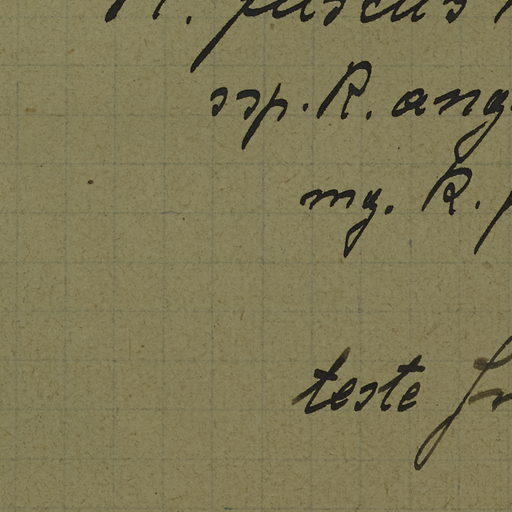 R. fuscus
ssp. R. ang
mg. R.
teste